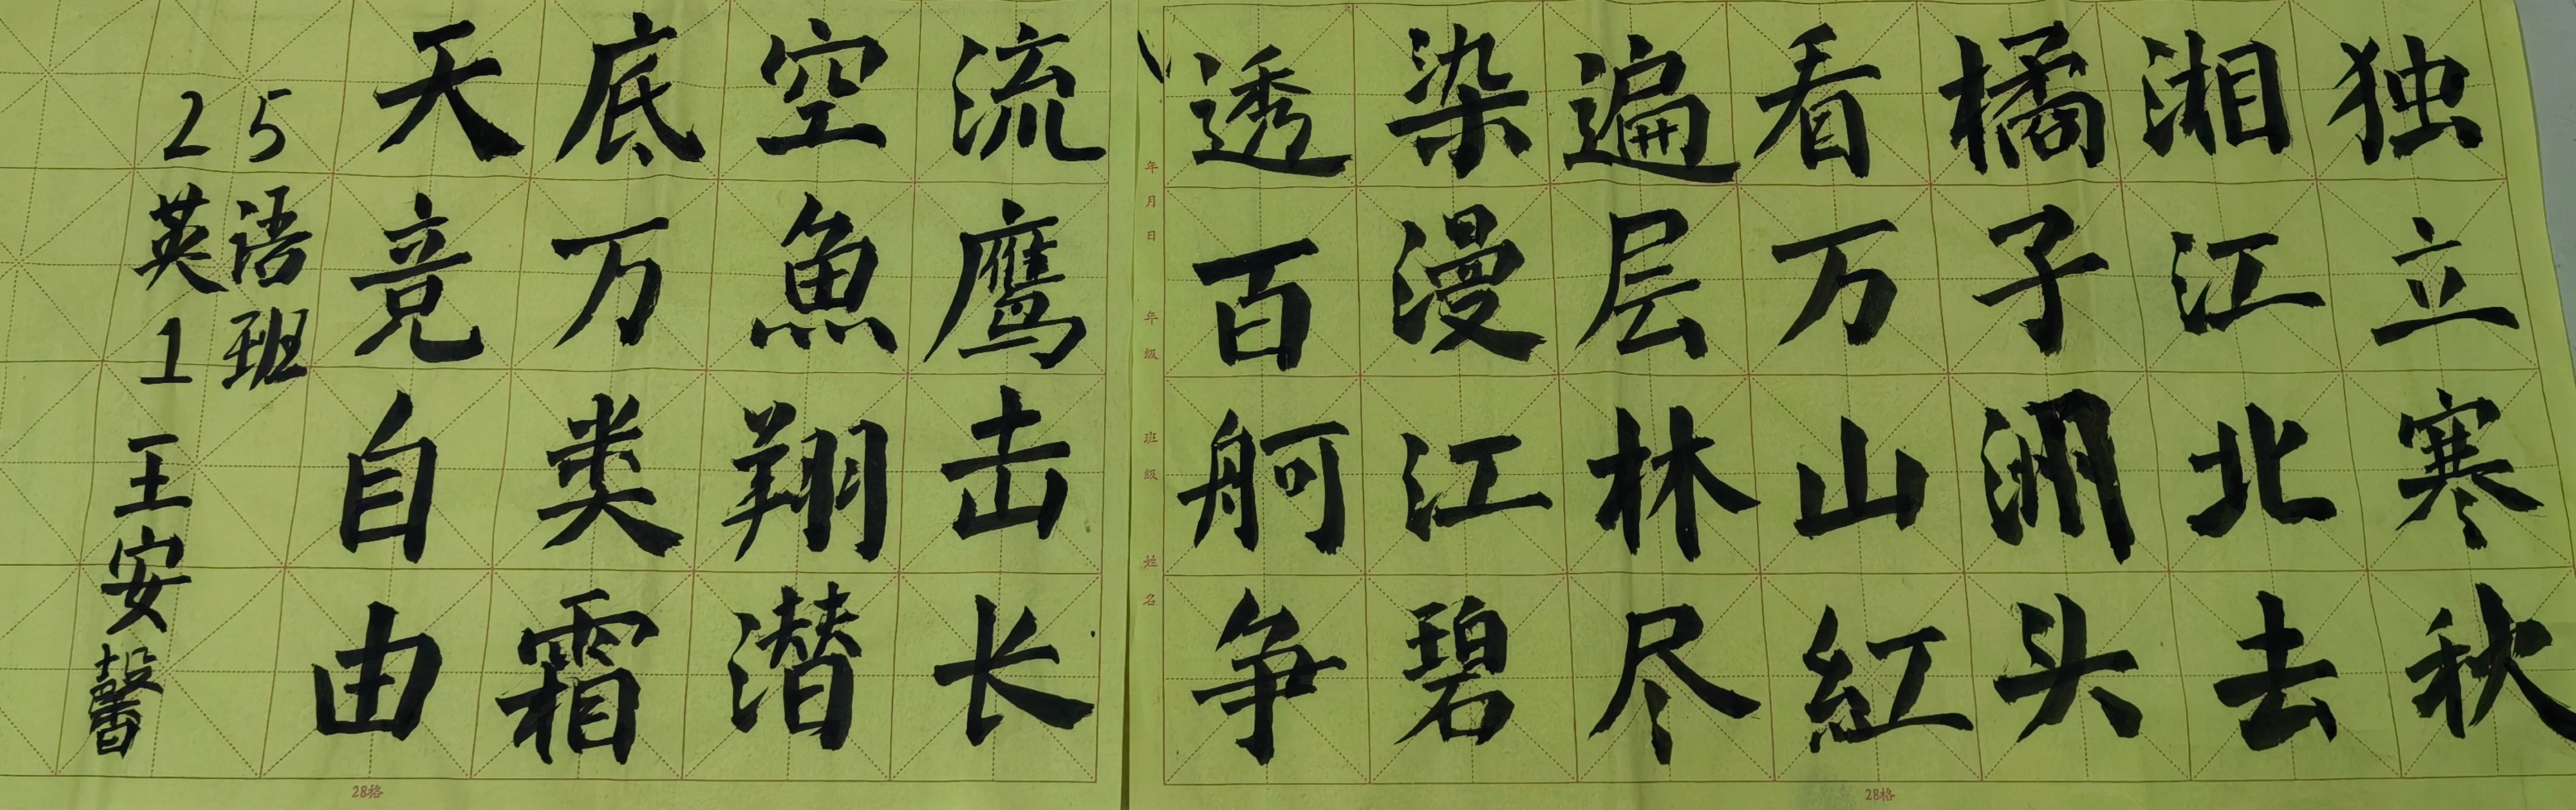 独立寒秋
湘江北去
橘子洲头
看万山红
遍层林尽
染漫江碧
透百舸争
流鹰击长
空鱼翔潜
底万类霜
天竞自由
25
英语
1班
王安馨
年月日
年级
班级
姓名
28格
28格